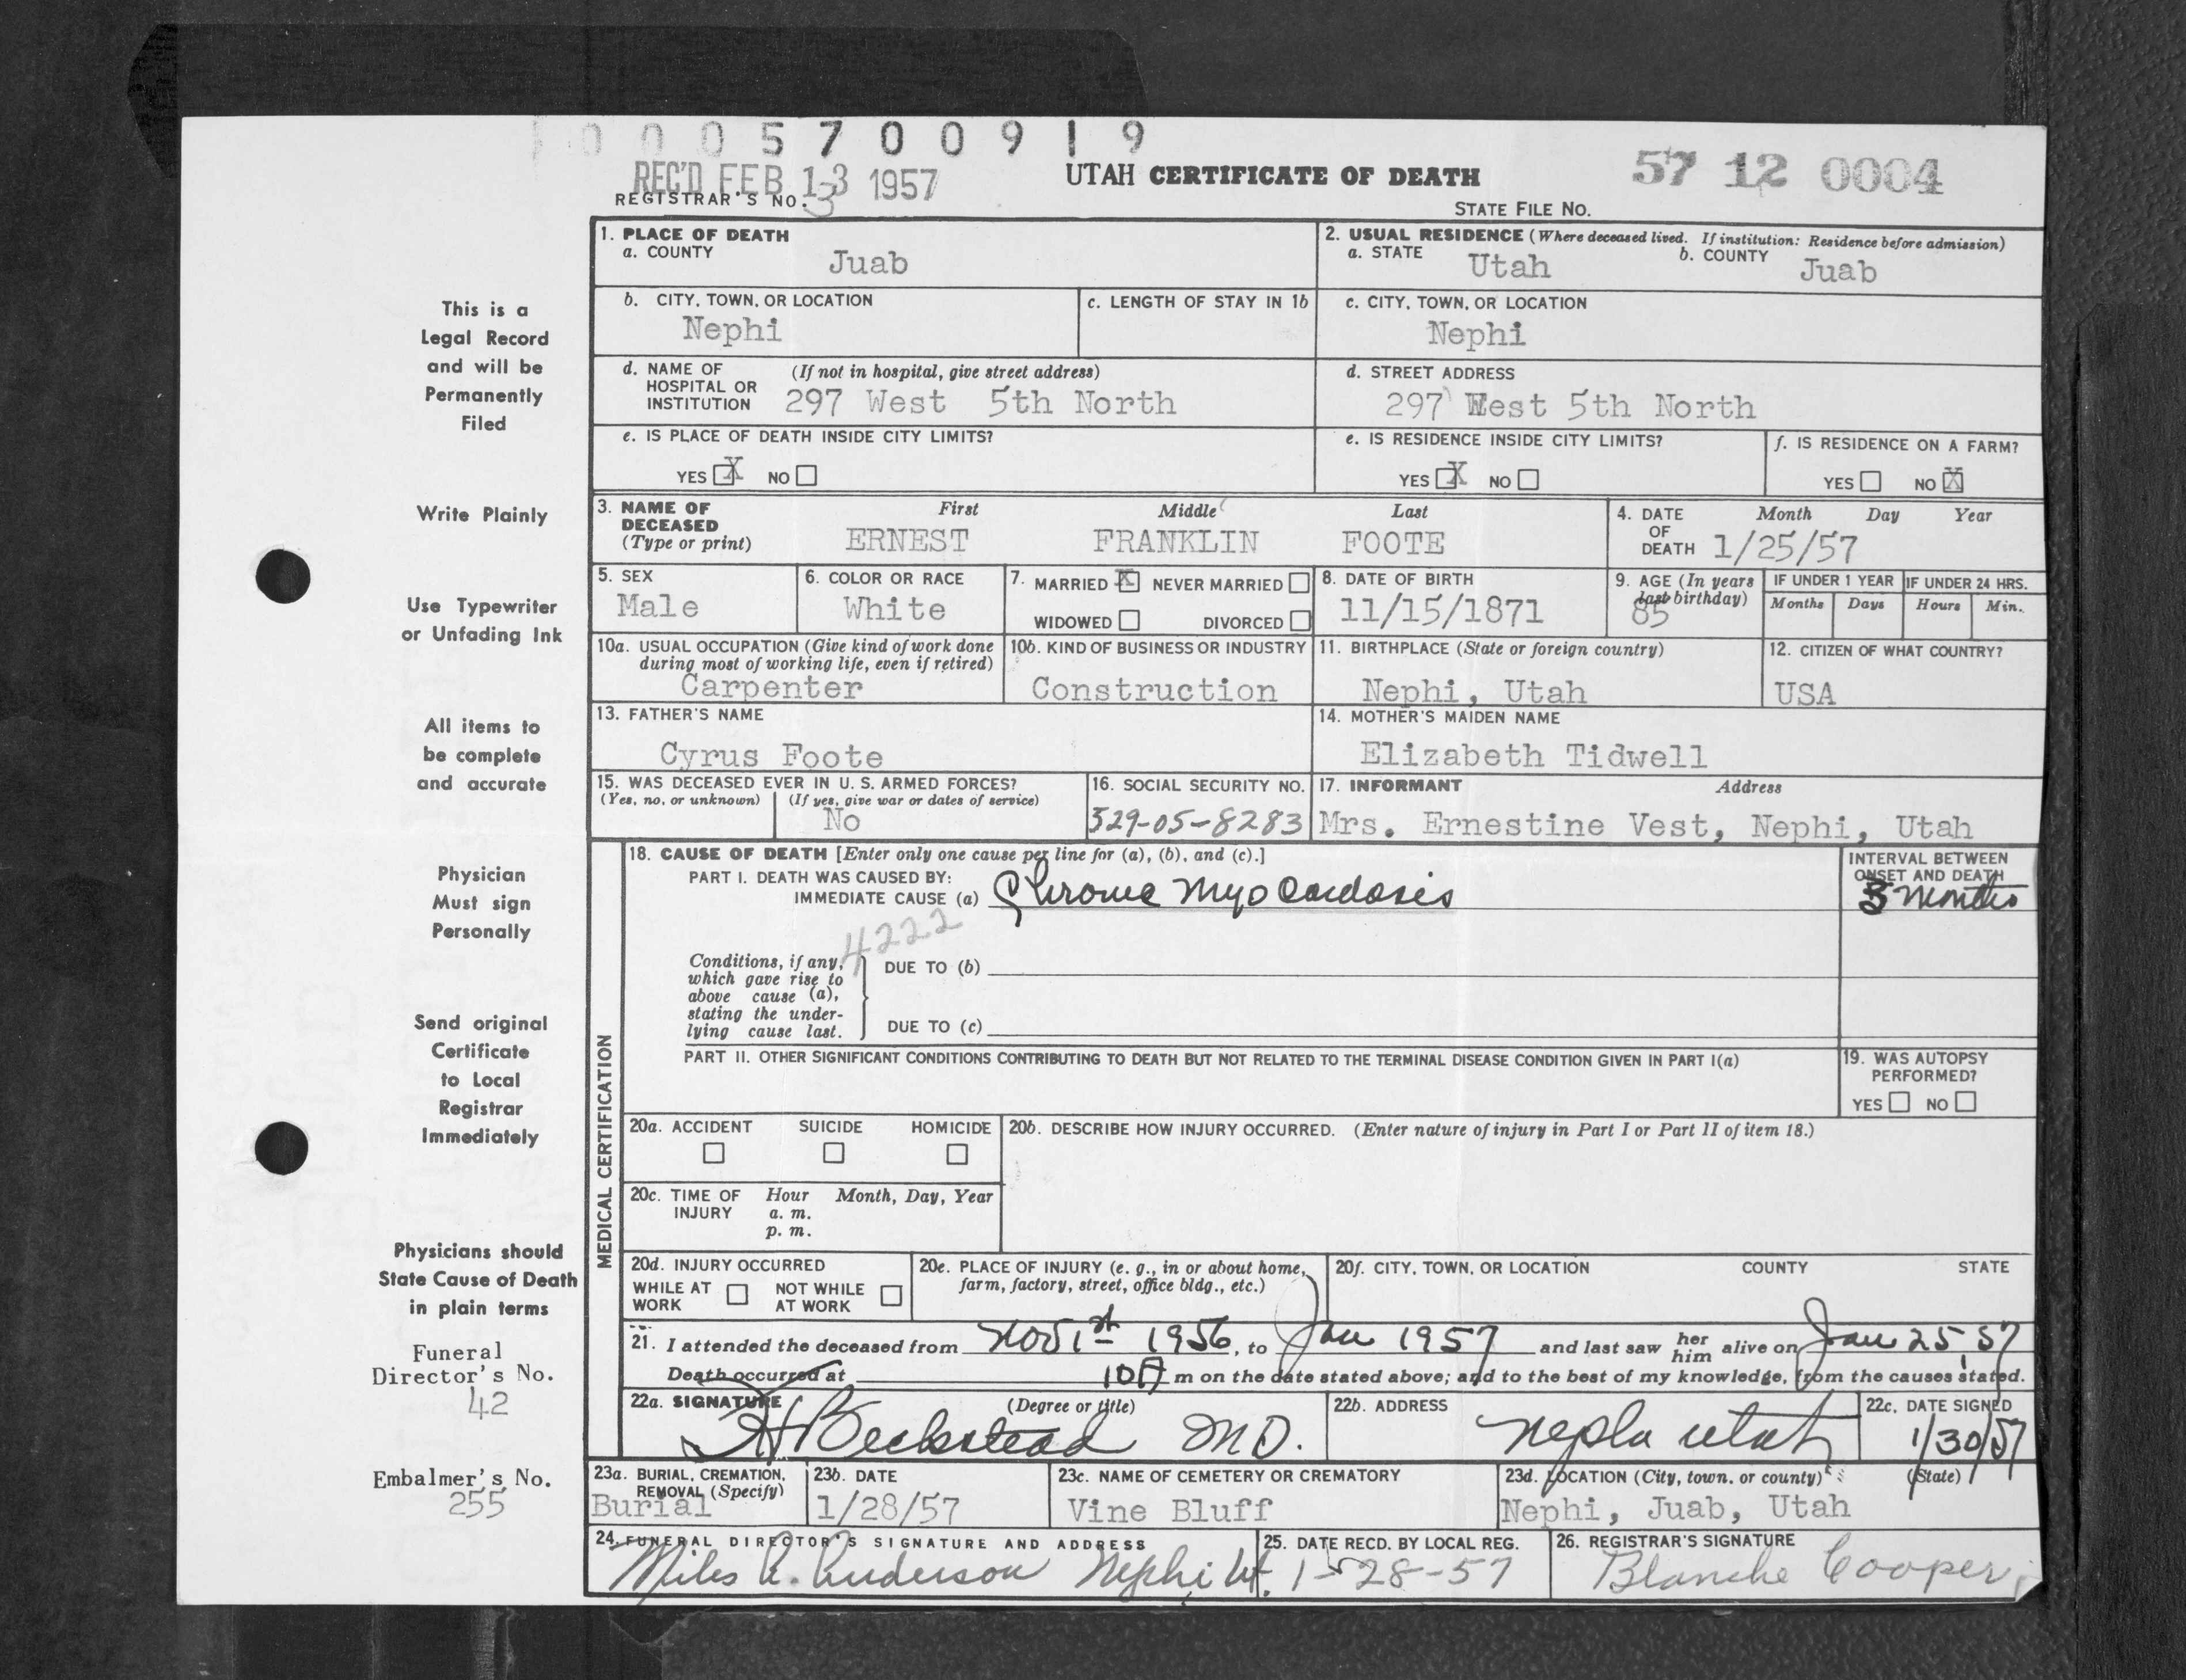 0005700919
REC'D FEB 13 1957
UTAH CERTIFICATE OF DEATH
57 12 0004
REGISTRAR'S NO. 3
STATE FILE NO.
This is a
Legal Record
and will be
Permanently
Filed
Write Plainly
Use Typewriter
or Unfading Ink
All items to
be complete
and accurate
Physician
Must sign
Personally
Send original
Certificate
to Local
Registrar
Immediately
Physicians should
State Cause of Death
in plain terms
Funeral
Director's No.
42
Embalmer's No.
255
1. PLACE OF DEATH
a. COUNTY
Juab
2. USUAL RESIDENCE (Where deceased lived. If institution: Residence before admission)
a. STATE Utah b. COUNTY Juab
b. CITY, TOWN, OR LOCATION
Nephi
c. LENGTH OF STAY IN 1b
c. CITY, TOWN, OR LOCATION
Nephi
d. NAME OF (If not in hospital, give street address)
HOSPITAL OR
INSTITUTION 297 West 5th North
d. STREET ADDRESS
297 West 5th North
e. IS PLACE OF DEATH INSIDE CITY LIMITS?
YES X NO
e. IS RESIDENCE INSIDE CITY LIMITS?
YES X NO
f. IS RESIDENCE ON A FARM?
YES NO X
3. NAME OF First Middle Last
DECEASED
(Type or print) ERNEST FRANKLIN FOOTE
4. DATE Month Day Year
OF
DEATH 1/25/57
5. SEX
Male
6. COLOR OR RACE
White
7. MARRIED X NEVER MARRIED
WIDOWED DIVORCED
8. DATE OF BIRTH
11/15/1871
9. AGE (In years
last birthday)
85
IF UNDER 1 YEAR IF UNDER 24 HRS.
Months Days Hours Min.
10a. USUAL OCCUPATION (Give kind of work done
during most of working life, even if retired)
Carpenter
10b. KIND OF BUSINESS OR INDUSTRY
Construction
11. BIRTHPLACE (State or foreign country)
Nephi, Utah
12. CITIZEN OF WHAT COUNTRY?
USA
13. FATHER'S NAME
Cyrus Foote
14. MOTHER'S MAIDEN NAME
Elizabeth Tidwell
15. WAS DECEASED EVER IN U. S. ARMED FORCES?
(Yes, no, or unknown) (If yes, give war or dates of service)
No
16. SOCIAL SECURITY NO.
529-05-8283
17. INFORMANT Address
Mrs. Ernestine Vest, Nephi, Utah
MEDICAL CERTIFICATION
18. CAUSE OF DEATH [Enter only one cause per line for (a), (b), and (c).]
PART I. DEATH WAS CAUSED BY:
IMMEDIATE CAUSE (a) Chronic Myocardosis
INTERVAL BETWEEN
ONSET AND DEATH
3 Months
4222
Conditions, if any,
which gave rise to
above cause (a),
stating the under-
lying cause last.
DUE TO (b)
DUE TO (c)
PART II. OTHER SIGNIFICANT CONDITIONS CONTRIBUTING TO DEATH BUT NOT RELATED TO THE TERMINAL DISEASE CONDITION GIVEN IN PART I(a)
19. WAS AUTOPSY
PERFORMED?
YES NO
20a. ACCIDENT SUICIDE HOMICIDE
20b. DESCRIBE HOW INJURY OCCURRED. (Enter nature of injury in Part I or Part II of item 18.)
20c. TIME OF Hour Month, Day, Year
INJURY a. m.
p. m.
20d. INJURY OCCURRED
WHILE AT NOT WHILE
WORK AT WORK
20e. PLACE OF INJURY (e. g., in or about home,
farm, factory, street, office bldg., etc.)
20f. CITY, TOWN, OR LOCATION COUNTY STATE
21. I attended the deceased from Nov 1st 1956, to Jan 1957 and last saw her him alive on Jan 25, 57
Death occurred at 10A m on the date stated above; and to the best of my knowledge, from the causes stated.
22a. SIGNATURE (Degree or title)
Beckstead MD.
22b. ADDRESS
Nephi Utah
22c. DATE SIGNED
1/30/57
23a. BURIAL, CREMATION,
REMOVAL (Specify)
Burial
23b. DATE
1/28/57
23c. NAME OF CEMETERY OR CREMATORY
Vine Bluff
23d. LOCATION (City, town, or county) (State)
Nephi, Juab, Utah
24. FUNERAL DIRECTOR'S SIGNATURE AND ADDRESS
Miles A. Anderson Nephi Ut.
25. DATE RECD. BY LOCAL REG.
1-28-57
26. REGISTRAR'S SIGNATURE
Blanche Cooper